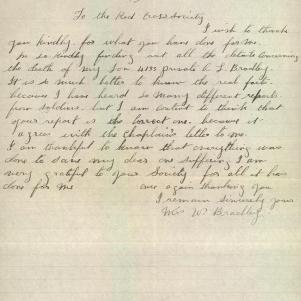 To the Red Cross Society
I wish to thank
you kindly for what you have done for me.
in so kindly finding out all the details concerning
the death of my Son 4133 private L. Bradley.
It is so much better to know the real facts.
because I have heard so many different reports
from soldiers. but I am content to think that
your report is the correct one. because it
agrees with the Chaplain's letter to me.
I am thankful to know that everything was
done to save my dear one suffering I am
very grateful to your Society for all it has
done for me once again thanking you
I remain sincerely yours
Mrs W. Bradley